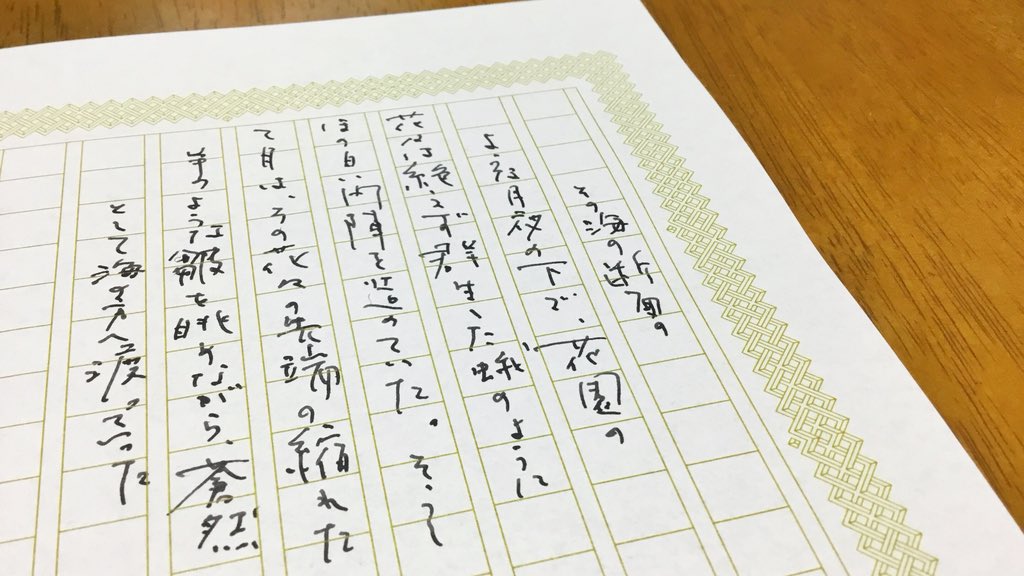 その海の断面の
ような月夜の下で、花園の
花は絶えず群生した蛾のように
ほの白い円陣を造っていた。そうし
て月は、その花々の先端の縮れた
羊のような皺を眺めながら、蒼然
として海の方へ渡って行った